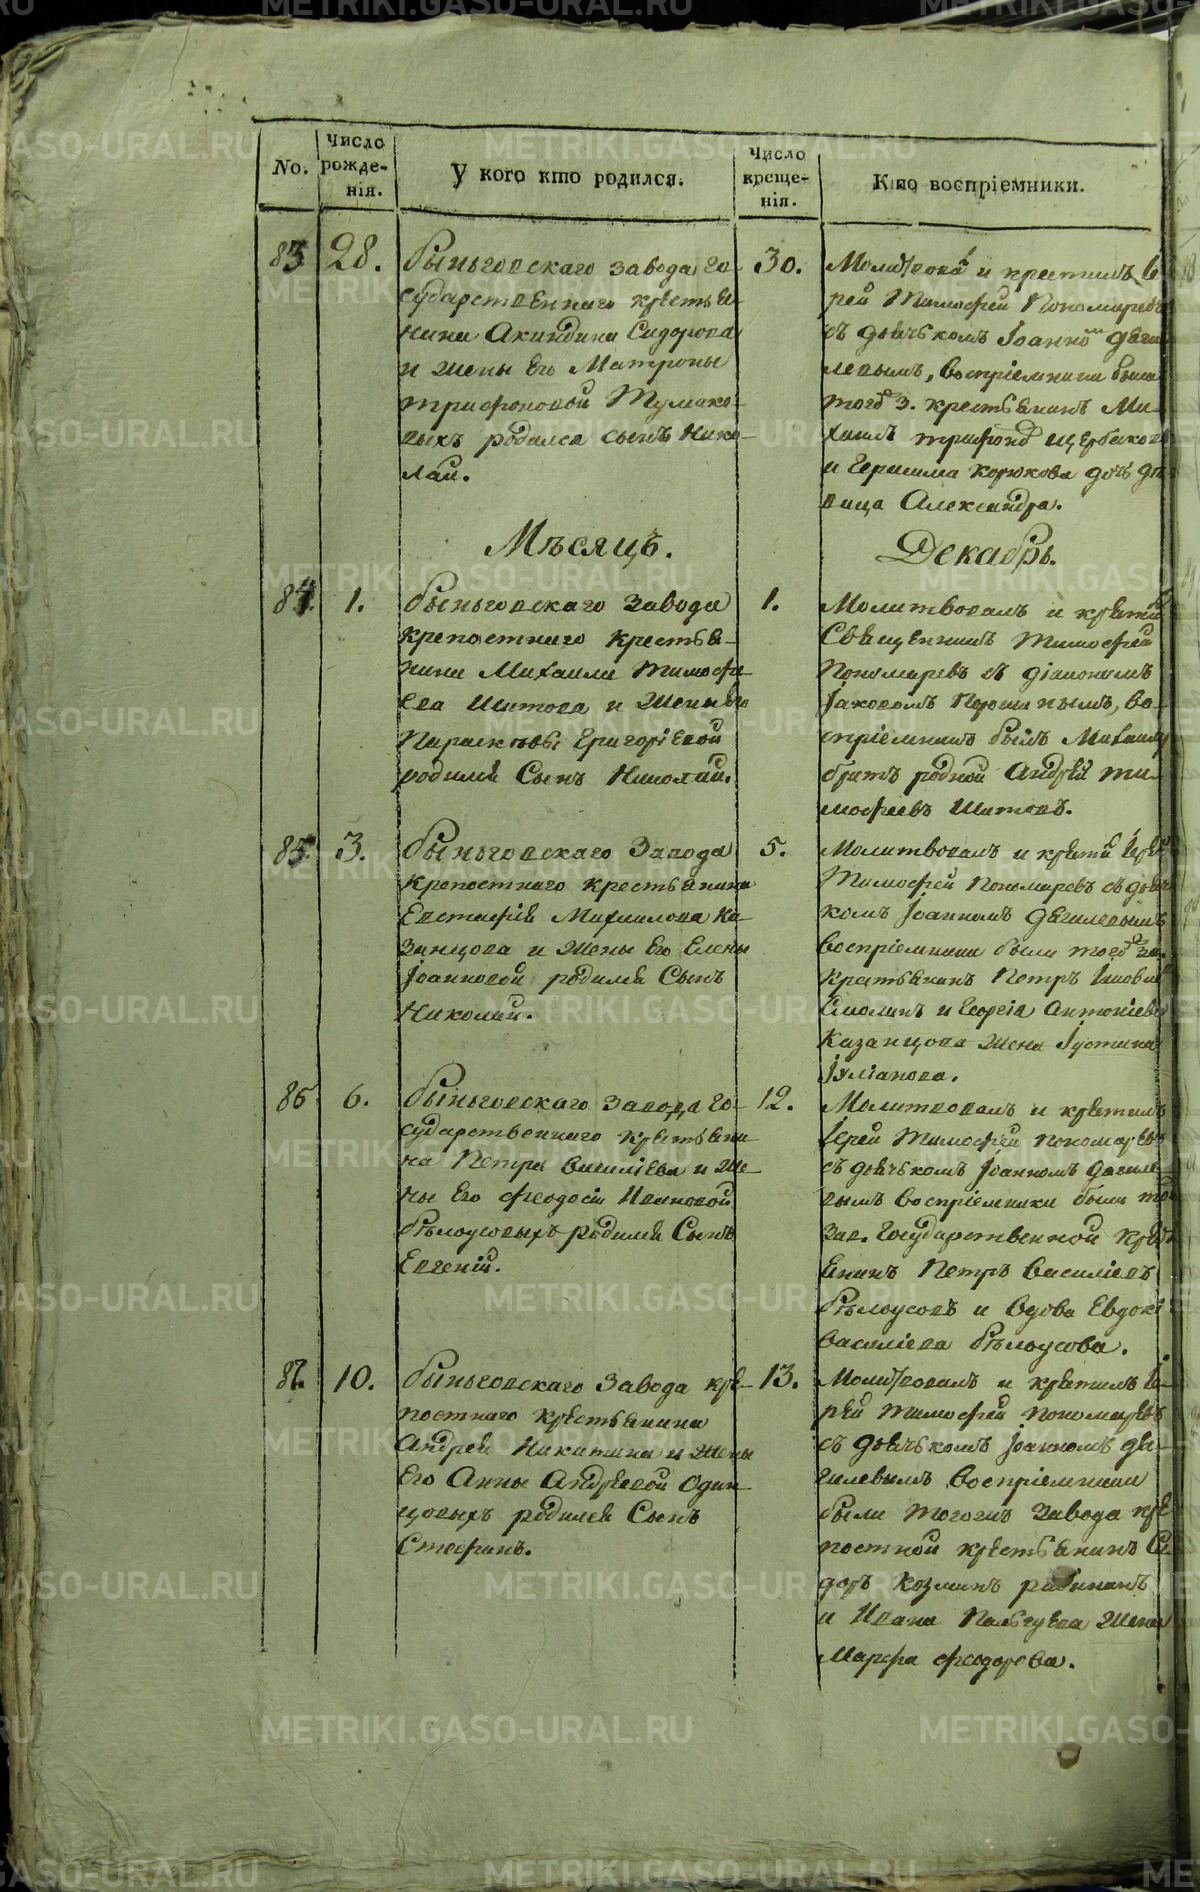 No.
Число рожде-
нія.
У кого кто родился.
Число
креще-
нія.
Кто воспріемники.
83
28.
Быньговскаго завода го-
сударственнаго крестья-
нина Акиндина Сидорова
и жены Его Матроны
трифоновой Тумако-
выхъ родился сынъ Нико-
лай.
30.
Молитвовалъ и крестилъ Іе-
рей Тимофей Пономаревъ
съ дьячькомъ Іоанномъ Дяги-
левымъ, воспріемники были
тогоъ з. крестьянинъ Ми-
хаилъ трифоновъ щербаков
и Герасима Корюкова дочь дѣ-
вица Александра.
Мѣсяцъ.
Декабрь.
84.
1.
Быньговскаго завода
крепостнаго крестья-
нина Михаила Тимофе-
ева Шитова и жены Его
Параскевы Григоріевой
родился Сынъ Николай.
1.
Молитвовалъ и крестилъ
Священникъ Тимофей
Пономаревъ съ діакономъ
Іаковомъ во-
спріемникъ былъ Михаилу
братъ родной Андрей ти-
мофеевъ Шитовъ.
85
3.
Быньговскаго Завода
крепостнаго крестьянина
Евстафія Михаилова Ка-
занцова и жены Его Елены
Іоанновой родился Сынъ
Николай.
5.
Молитвовалъ и крестилъ Іерей
Тимофей Пономаревъ съ дьяч
комъ Іоанномъ Дягилевымъ
воспріемники были тогоъ за.
крестьянинъ Петръ Іаковле
Смолинъ и Георгія Антоніева
Казанцова жена Іустина
Іуліанова.
86
6.
Быньговскаго Завода Го-
сударственнаго крестьяни-
на Петра Василіева и же-
ны Его Феодосіи Ивановой
Бѣлоусовыхъ родился Сынъ
Евгеній.
12.
Молитвовалъ и крестилъ
Іерей Тимофей Пономаревъ
съ дьячькомъ Іоанномъ Дягиле-
вымъ воспріемники были той
Зав. Государственной крест
янинъ Петръ Василіевъ
Бѣлоусовъ и вдова Евдокі
Василіева Бѣлоусова.
87.
10.
Быньговскаго Завода кре-
постнаго крестьянина
Андрея Никитина и жены
Его Анны Андреевой Один-
цовыхъ родился Сынъ
Стефанъ.
13.
Молитвовалъ и крестилъ Іе-
рей Тимофей Пономаревъ
съ дьячькомъ Іоанномъ Дя-
гилевымъ воспріемники
были тогожъ Завода кре
постной крестьянинъ Си
доръ Козминъ
и Ивана жена
Марфа Феодорова.
METRIKI.GASO-URAL.RU